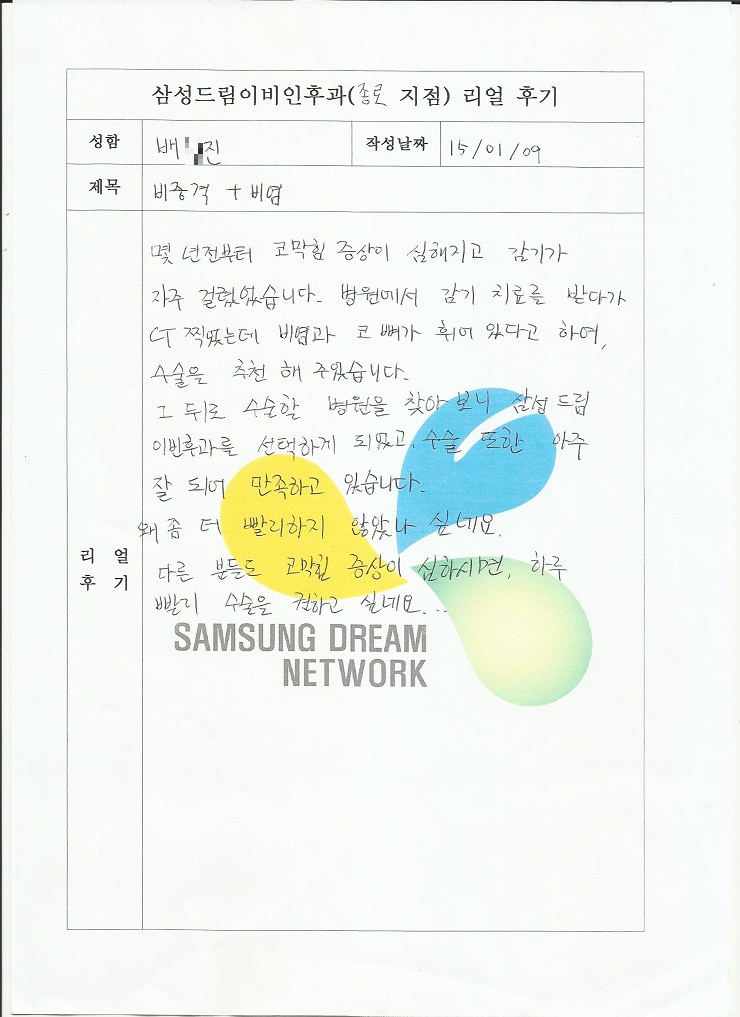 삼성드림이비인후과(종로 지점) 리얼 후기
성함 배 진 작성날짜 15/01/09
제목 비중격 + 비염
몇 년전부터 코막힘 증상이 심해지고 감기가
자주 걸렸었습니다. 병원에서 감기 치료를 받다가
CT 찍었는데 비염과 코 뼈가 휘어 있다고 하여,
수술은 추천 해 주었습니다.
그 뒤로 수술할 병원을 찾아 보니 삼성 드림
이빈후과를 선택하게 되었고, 수술 또한 아주
잘 되어 만족하고 있습니다.
왜 좀 더 빨리하지 않았나 싶네요.
리 얼
후 기
다른 분들도 코막힘 증상이 심하시면, 하루
빨리 수술은 권하고 싶네요...
SAMSUNG DREAM
NETWORK